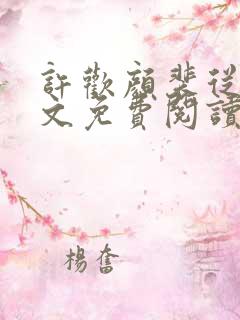 許歡顏裴從
文免費閱讀
楊奮